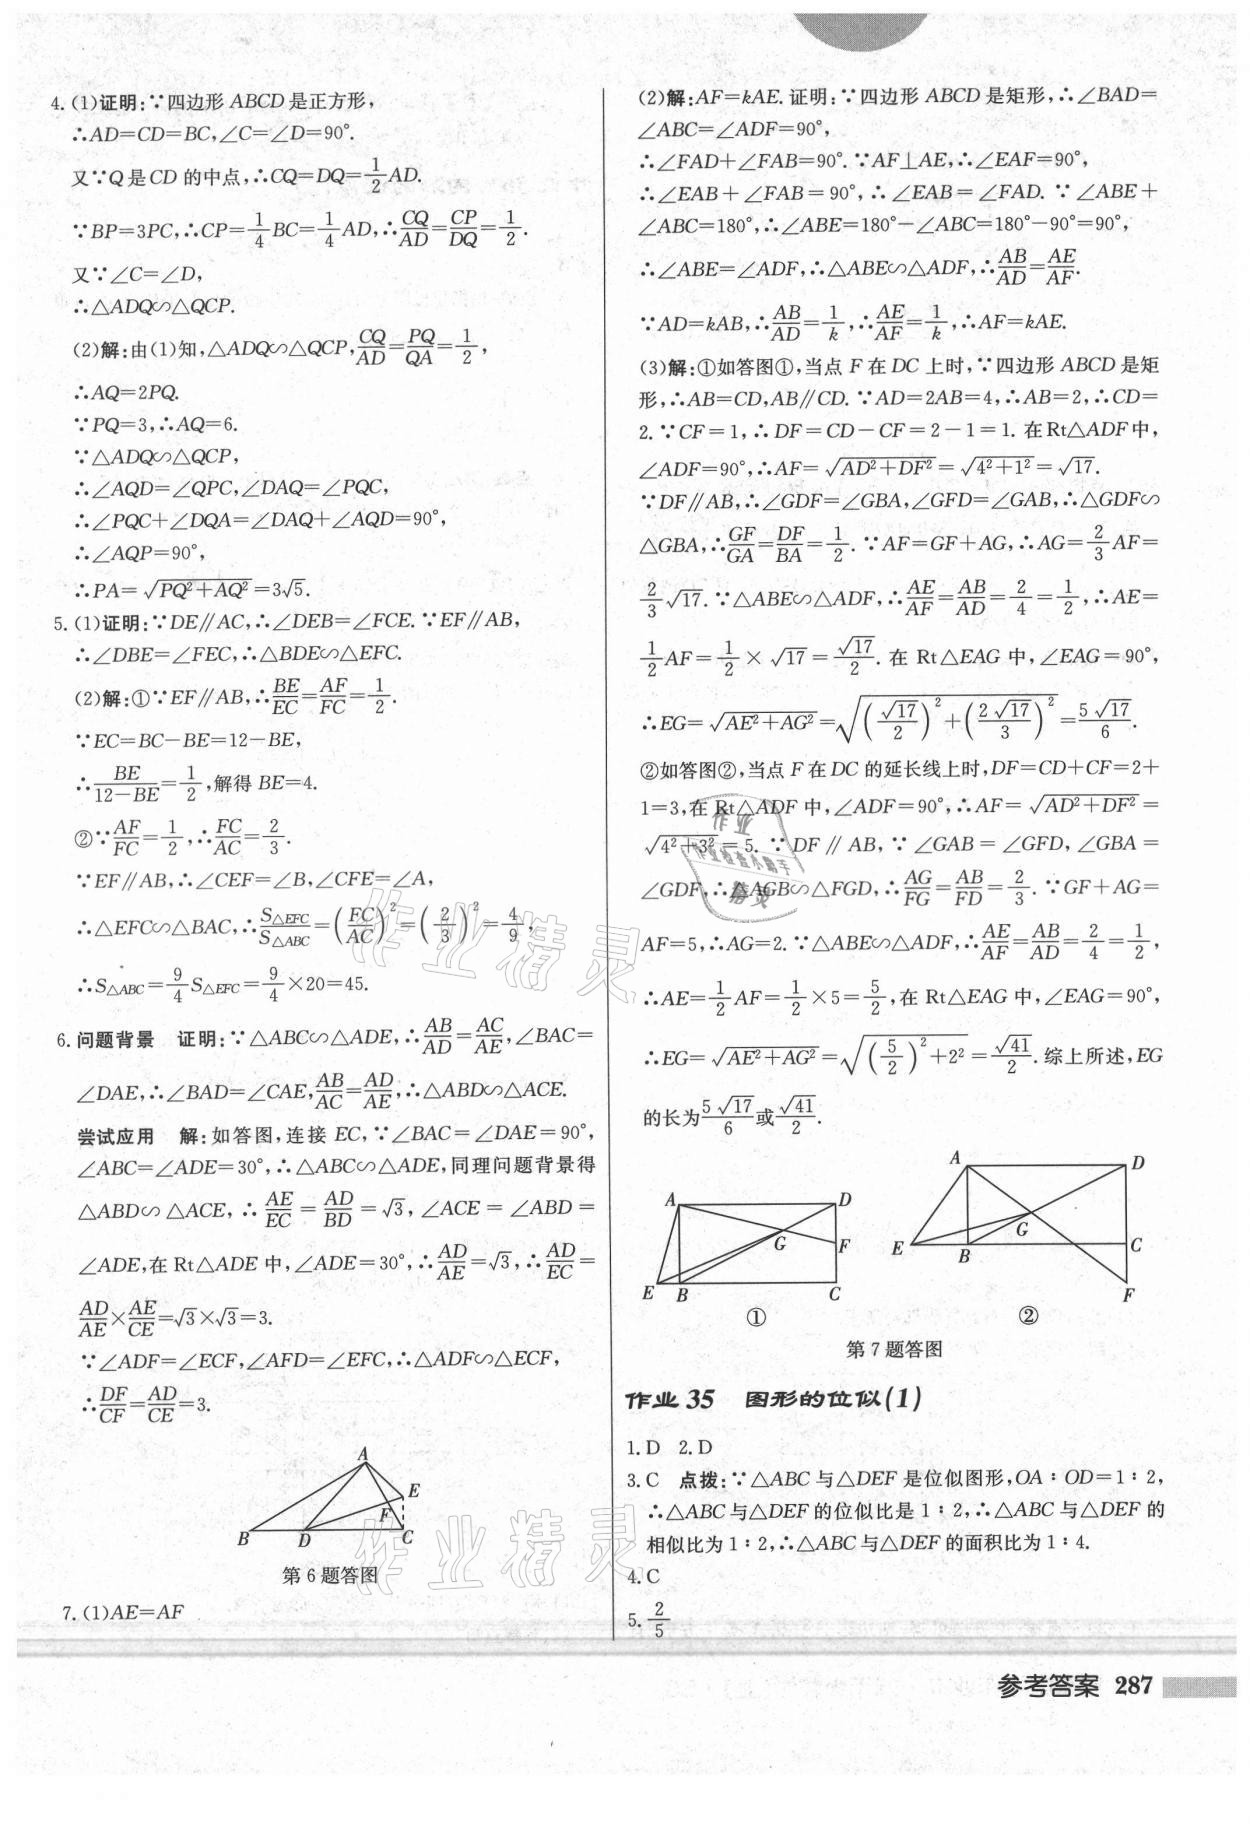 4. (1)证明:∵四边形 ABCD 是正方形,
∴AD=CD=BC,∠C=∠D=90°.
又∵Q 是 CD 的中点,∴CQ=DQ=1/2AD.
∵BP=3PC,∴CP=1/4BC=1/4AD,∴CQ/AD=CP/DQ=1/2.
又∵∠C=∠D,
∴△ADQ∽△QCP.
(2)解:由(1)知,△ADQ∽△QCP,CQ/AD=PQ/QA=1/2,
∴AQ=2PQ.
∵PQ=3,∴AQ=6.
∵△ADQ∽△QCP,
∴∠AQD=∠QPC,∠DAQ=∠PQC,
∴∠PQC+∠DQA=∠DAQ+∠AQD=90°,
∴∠AQP=90°,
∴PA=√(PQ²+AQ²)=3√5.
5. (1)证明:∵DE∥AC,∴∠DEB=∠FCE.∵EF∥AB,
∴∠DBE=∠FEC,∴△BDE∽△EFC.
(2)解:①∵EF∥AB,∴BE/EC=AF/FC=1/2.
∵EC=BC−BE=12−BE,
∴BE/(12−BE)=1/2,解得 BE=4.
②∵AF/FC=1/2,∴FC/AC=2/3.
∵EF∥AB,∴∠CEF=∠B,∠CFE=∠A,
∴△EFC∽△BAC,∴S△EFC/S△ABC=(FC/AC)²=(2/3)²=4/9,
∴S△ABC=9/4S△EFC=9/4×20=45.
6. 问题背景 证明:∵△ABC∽△ADE,∴AB/AD=AC/AE,∠BAC=
∠DAE,∴∠BAD=∠CAE,AB/AC=AD/AE,∴△ABD∽△ACE.
尝试应用 解:如答图,连接 EC,∵∠BAC=∠DAE=90°,
∠ABC=∠ADE=30°,∴△ABC∽△ADE,同理问题背景得
△ABD∽△ACE,∴AE/EC=AD/BD=√3,∠ACE=∠ABD=
∠ADE,在 Rt△ADE 中,∠ADE=30°,∴AD/AE=√3,∴AD/EC=
AD/AE×AE/CE=√3×√3=3.
∵∠ADF=∠ECF,∠AFD=∠EFC,∴△ADF∽△ECF,
∴DF/CF=AD/CE=3.
A
E
F
B D C
第 6 题答图
7. (1)AE=AF
(2)解:AF=kAE.证明:∵四边形 ABCD 是矩形,∴∠BAD=
∠ABC=∠ADF=90°,
∴∠FAD+∠FAB=90°.∵AF⊥AE,∴∠EAF=90°,
∴∠EAB+∠FAB=90°,∴∠EAB=∠FAD.∵∠ABE+
∠ABC=180°,∴∠ABE=180°−∠ABC=180°−90°=90°,
∴∠ABE=∠ADF,∴△ABE∽△ADF,∴AB/AD=AE/AF.
∵AD=kAB,∴AB/AD=1/k,∴AE/AF=1/k,∴AF=kAE.
(3)解:①如答图①,当点 F 在 DC 上时,∵四边形 ABCD 是矩
形,∴AB=CD,AB∥CD.∵AD=2AB=4,∴AB=2,∴CD=
2.∵CF=1,∴DF=CD−CF=2−1=1.在 Rt△ADF 中,
∠ADF=90°,∴AF=√(AD²+DF²)=√(4²+1²)=√17.
∵DF∥AB,∴∠GDF=∠GBA,∠GFD=∠GAB,∴△GDF∽
△GBA,∴GF/GA=DF/BA=1/2.∵AF=GF+AG,∴AG=2/3AF=
2/3√17.∵△ABE∽△ADF,∴AE/AF=AB/AD=2/4=1/2,∴AE=
1/2AF=1/2×√17=√17/2.在 Rt△EAG 中,∠EAG=90°,
∴EG=√(AE²+AG²)=√((√17/2)²+(2√17/3)²)=5√17/6.
②如答图②,当点 F 在 DC 的延长线上时,DF=CD+CF=2+
1=3,在 Rt△ADF 中,∠ADF=90°,∴AF=√(AD²+DF²)=
√(4²+3²)=5.∵DF∥AB,∵∠GAB=∠GFD,∠GBA=
∠GDF,∴△AGB∽△FGD,∴AG/FG=AB/FD=2/3.∵GF+AG=
AF=5,∴AG=2.∵△ABE∽△ADF,∴AE/AF=AB/AD=2/4=1/2,
∴AE=1/2AF=1/2×5=5/2,在 Rt△EAG 中,∠EAG=90°,
∴EG=√(AE²+AG²)=√((5/2)²+2²)=√41/2.综上所述,EG
的长为5√17/6或√41/2.
A D
G F
E B C
①
A D
G
E B C
F
②
第 7 题答图
作业 35 图形的位似(1)
1. D 2. D
3. C 点拨:∵△ABC 与△DEF 是位似图形,OA∶OD=1∶2,
∴△ABC 与△DEF 的位似比是 1∶2,∴△ABC 与△DEF 的
相似比为 1∶2,∴△ABC 与△DEF 的面积比为 1∶4.
4. C
5. 2/5
参考答案 287
作业精灵
作业精灵
作业
作业检查小助手
精灵